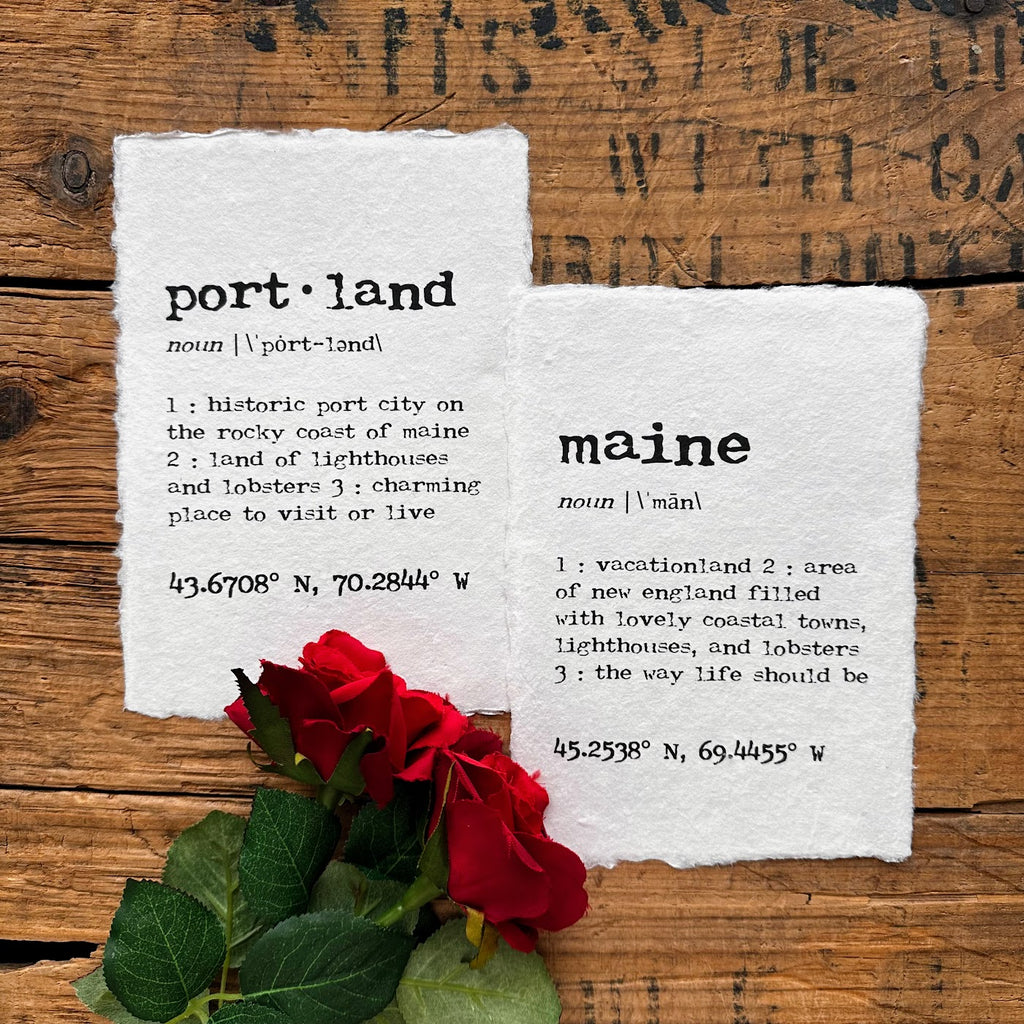 ITS SIDE
WITH CA
port·land
noun | \ˈpȯrt-lənd\
1 : historic port city on
the rocky coast of maine
2 : land of lighthouses
and lobsters 3 : charming
place to visit or live
43.6708° N, 70.2844° W
maine
noun | \ˈmān\
1 : vacationland 2 : area
of new england filled
with lovely coastal towns,
lighthouses, and lobsters
3 : the way life should be
45.2538° N, 69.4455° W